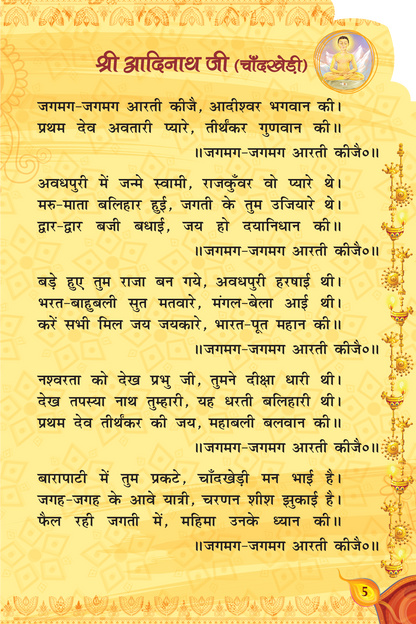 श्री आदिनाथ जी (चाँदखेड़ी)
जगमग-जगमग आरती कीजै, आदीश्वर भगवान की।
प्रथम देव अवतारी प्यारे, तीर्थंकर गुणवान की॥
॥जगमग-जगमग आरती कीजै०॥
अवधपुरी में जन्मे स्वामी, राजकुँवर वो प्यारे थे।
मरु-माता बलिहार हुई, जगती के तुम उजियारे थे।
द्वार-द्वार बजी बधाई, जय हो दयानिधान की॥
॥जगमग-जगमग आरती कीजै०॥
बड़े हुए तुम राजा बन गये, अवधपुरी हरषाई थी।
भरत-बाहुबली सुत मतवारे, मंगल-बेला आई थी।
करें सभी मिल जय जयकारे, भारत-पूत महान की॥
॥जगमग-जगमग आरती कीजै०॥
नश्वरता को देख प्रभु जी, तुमने दीक्षा धारी थी।
देख तपस्या नाथ तुम्हारी, यह धरती बलिहारी थी।
प्रथम देव तीर्थंकर की जय, महाबली बलवान की॥
॥जगमग-जगमग आरती कीजै०॥
बारापाटी में तुम प्रकटे, चाँदखेड़ी मन भाई है।
जगह-जगह के आवे यात्री, चरणन शीश झुकाई है।
फैल रही जगती में, महिमा उनके ध्यान की॥
॥जगमग-जगमग आरती कीजै०॥
5